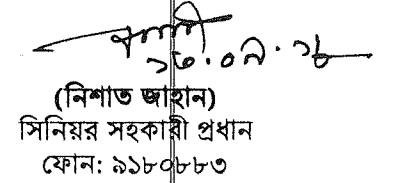 ১৬.০৯.১৮
(নিশাত জাহান)
সিনিয়র সহকারী প্রধান
ফোন: ৯১৮০৮৮৩